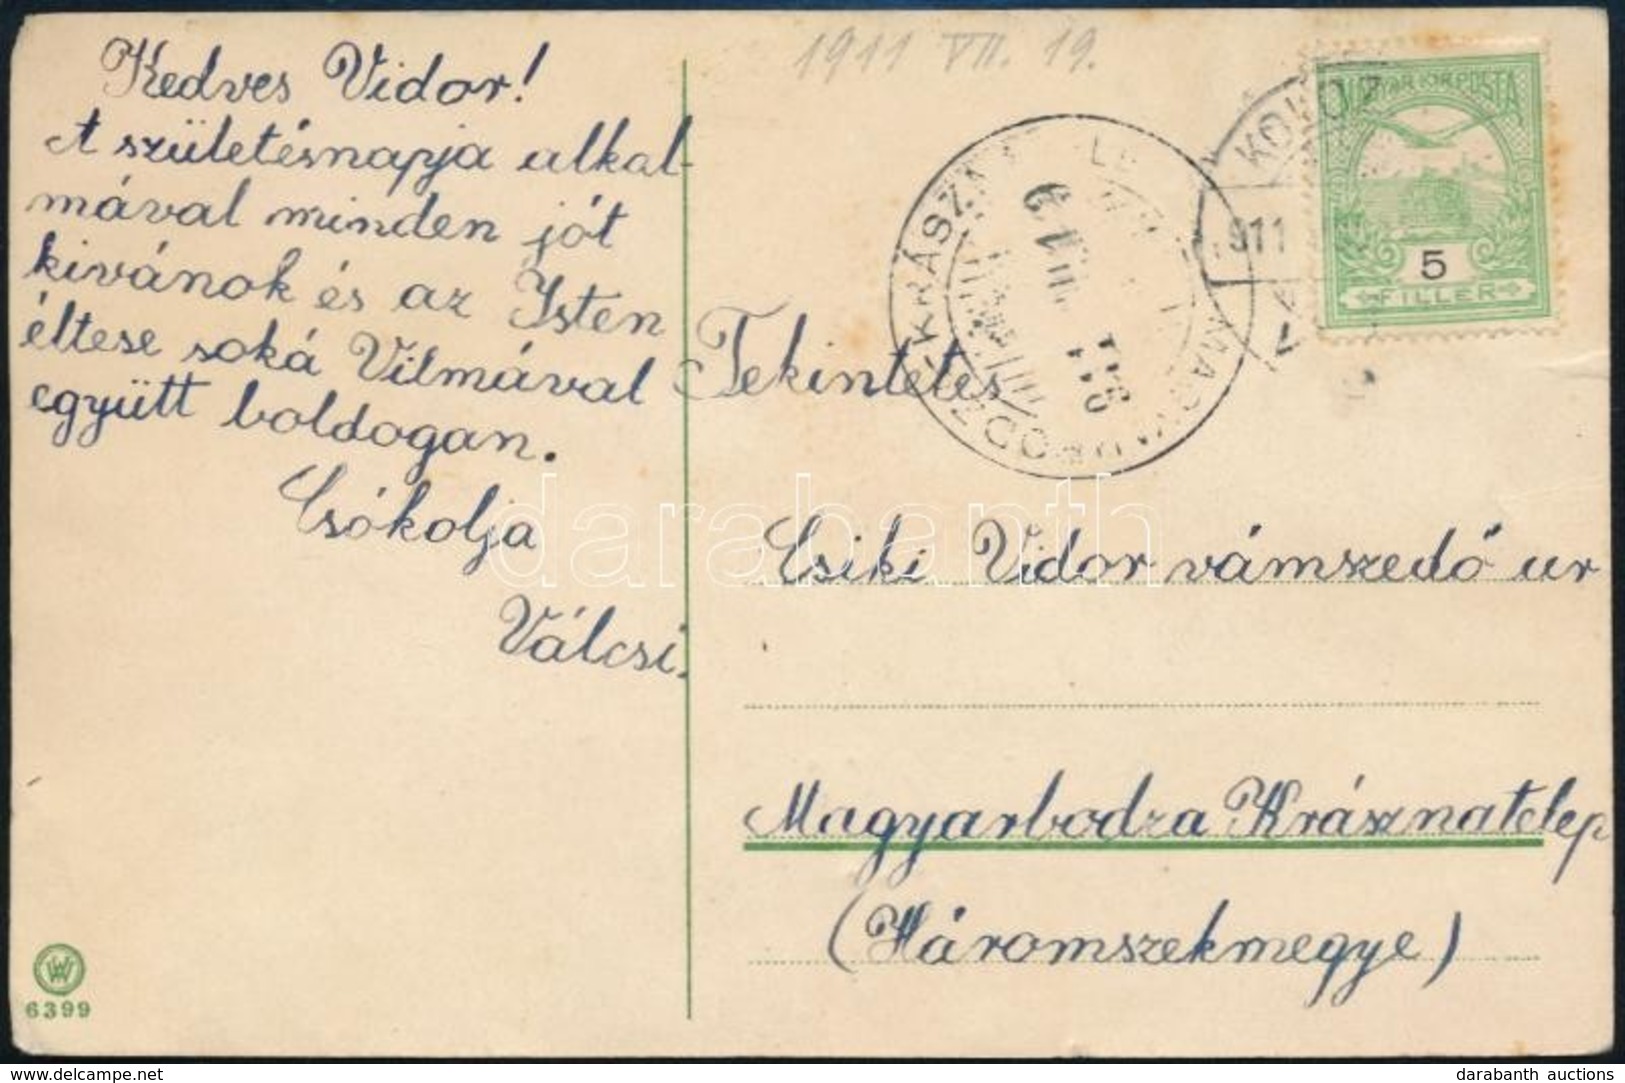 1911 VII. 19.
Kedves Vidor!
A születésnapja alkal-
mával minden jót
kivánok és az Isten
éltese soká Vilmával
együtt boldogan.
Csókolja
Válcsi.
MAGYAR KIR POSTA
5
FILLÉR
911
Tekintetes
Csiki Vidor vámszedő ur
Magyarbodza Krásznatelep
(Háromszekmegye)
6399
darabanth
www.delcampe.net
darabanth auctions